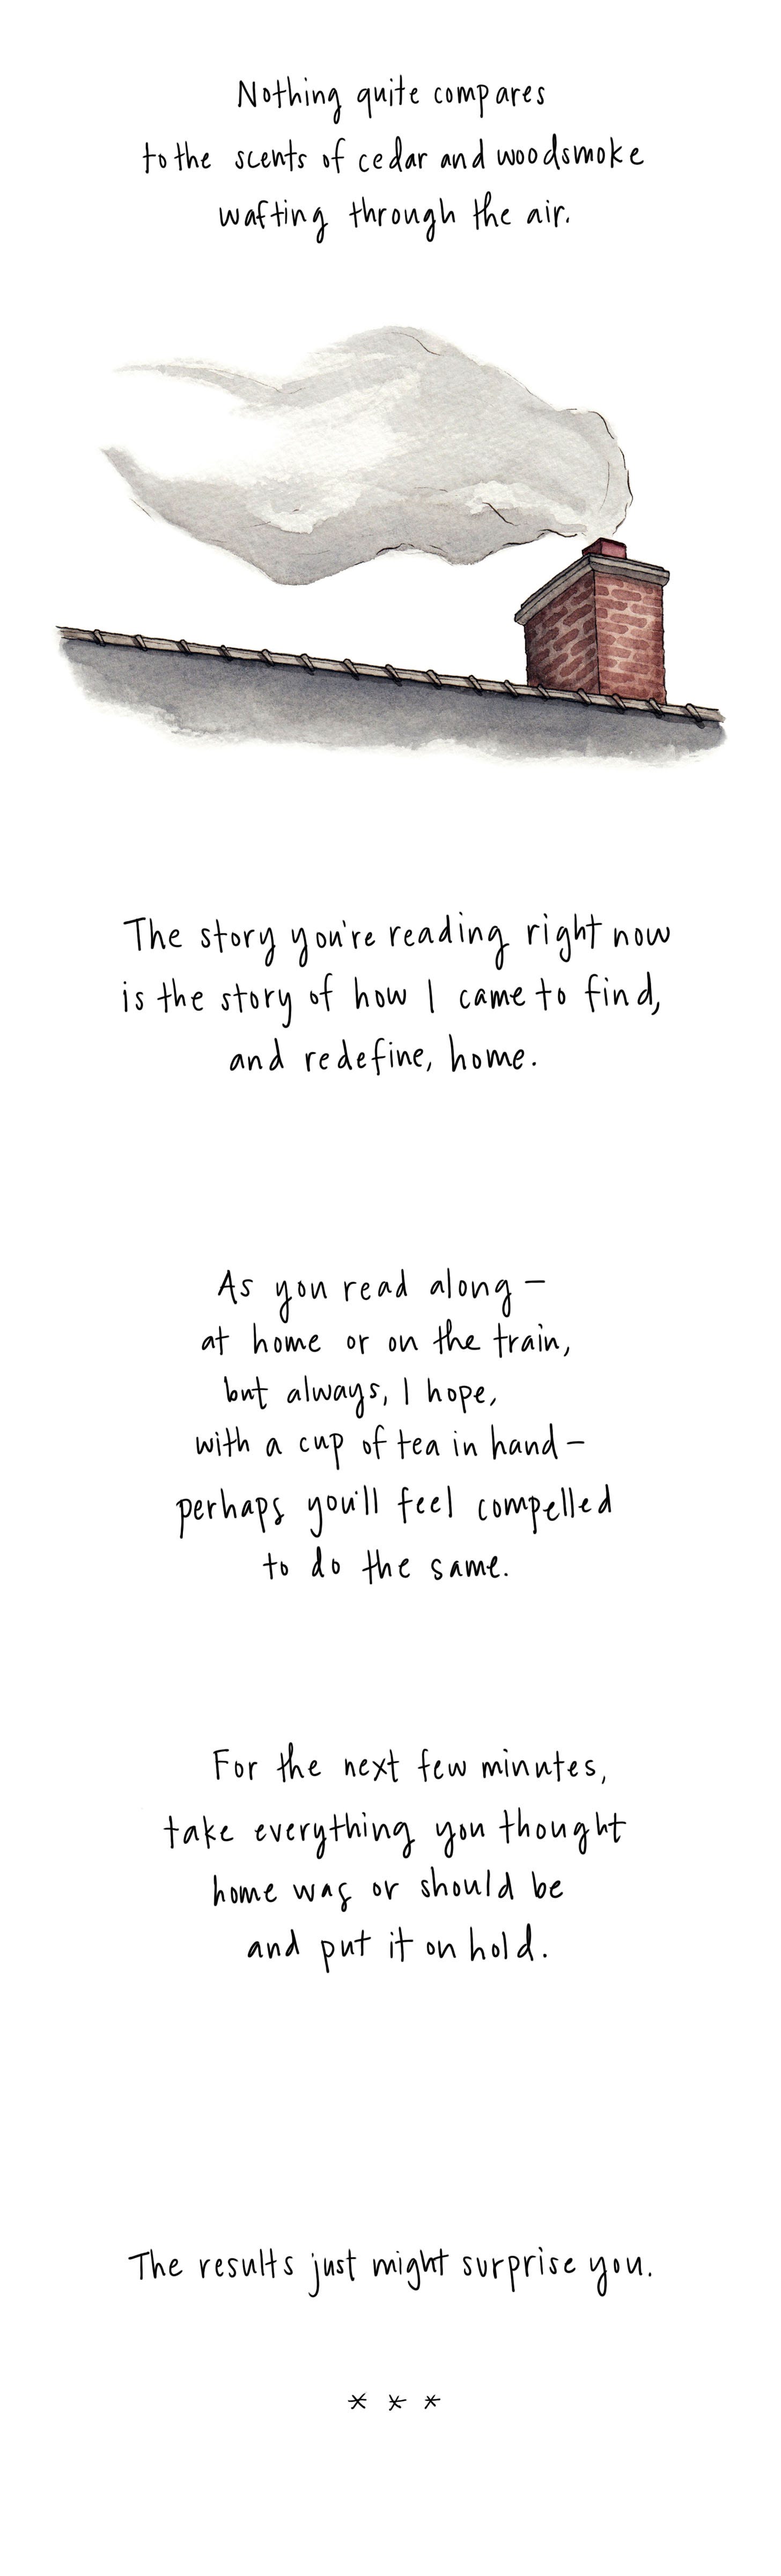 Nothing quite compares
to the scents of cedar and woodsmoke
wafting through the air.
The story you're reading right now
is the story of how I came to find,
and redefine, home.
As you read along —
at home or on the train,
but always, I hope,
with a cup of tea in hand —
perhaps you'll feel compelled
to do the same.
For the next few minutes,
take everything you thought
home was or should be
and put it on hold.
The results just might surprise you.
* * *